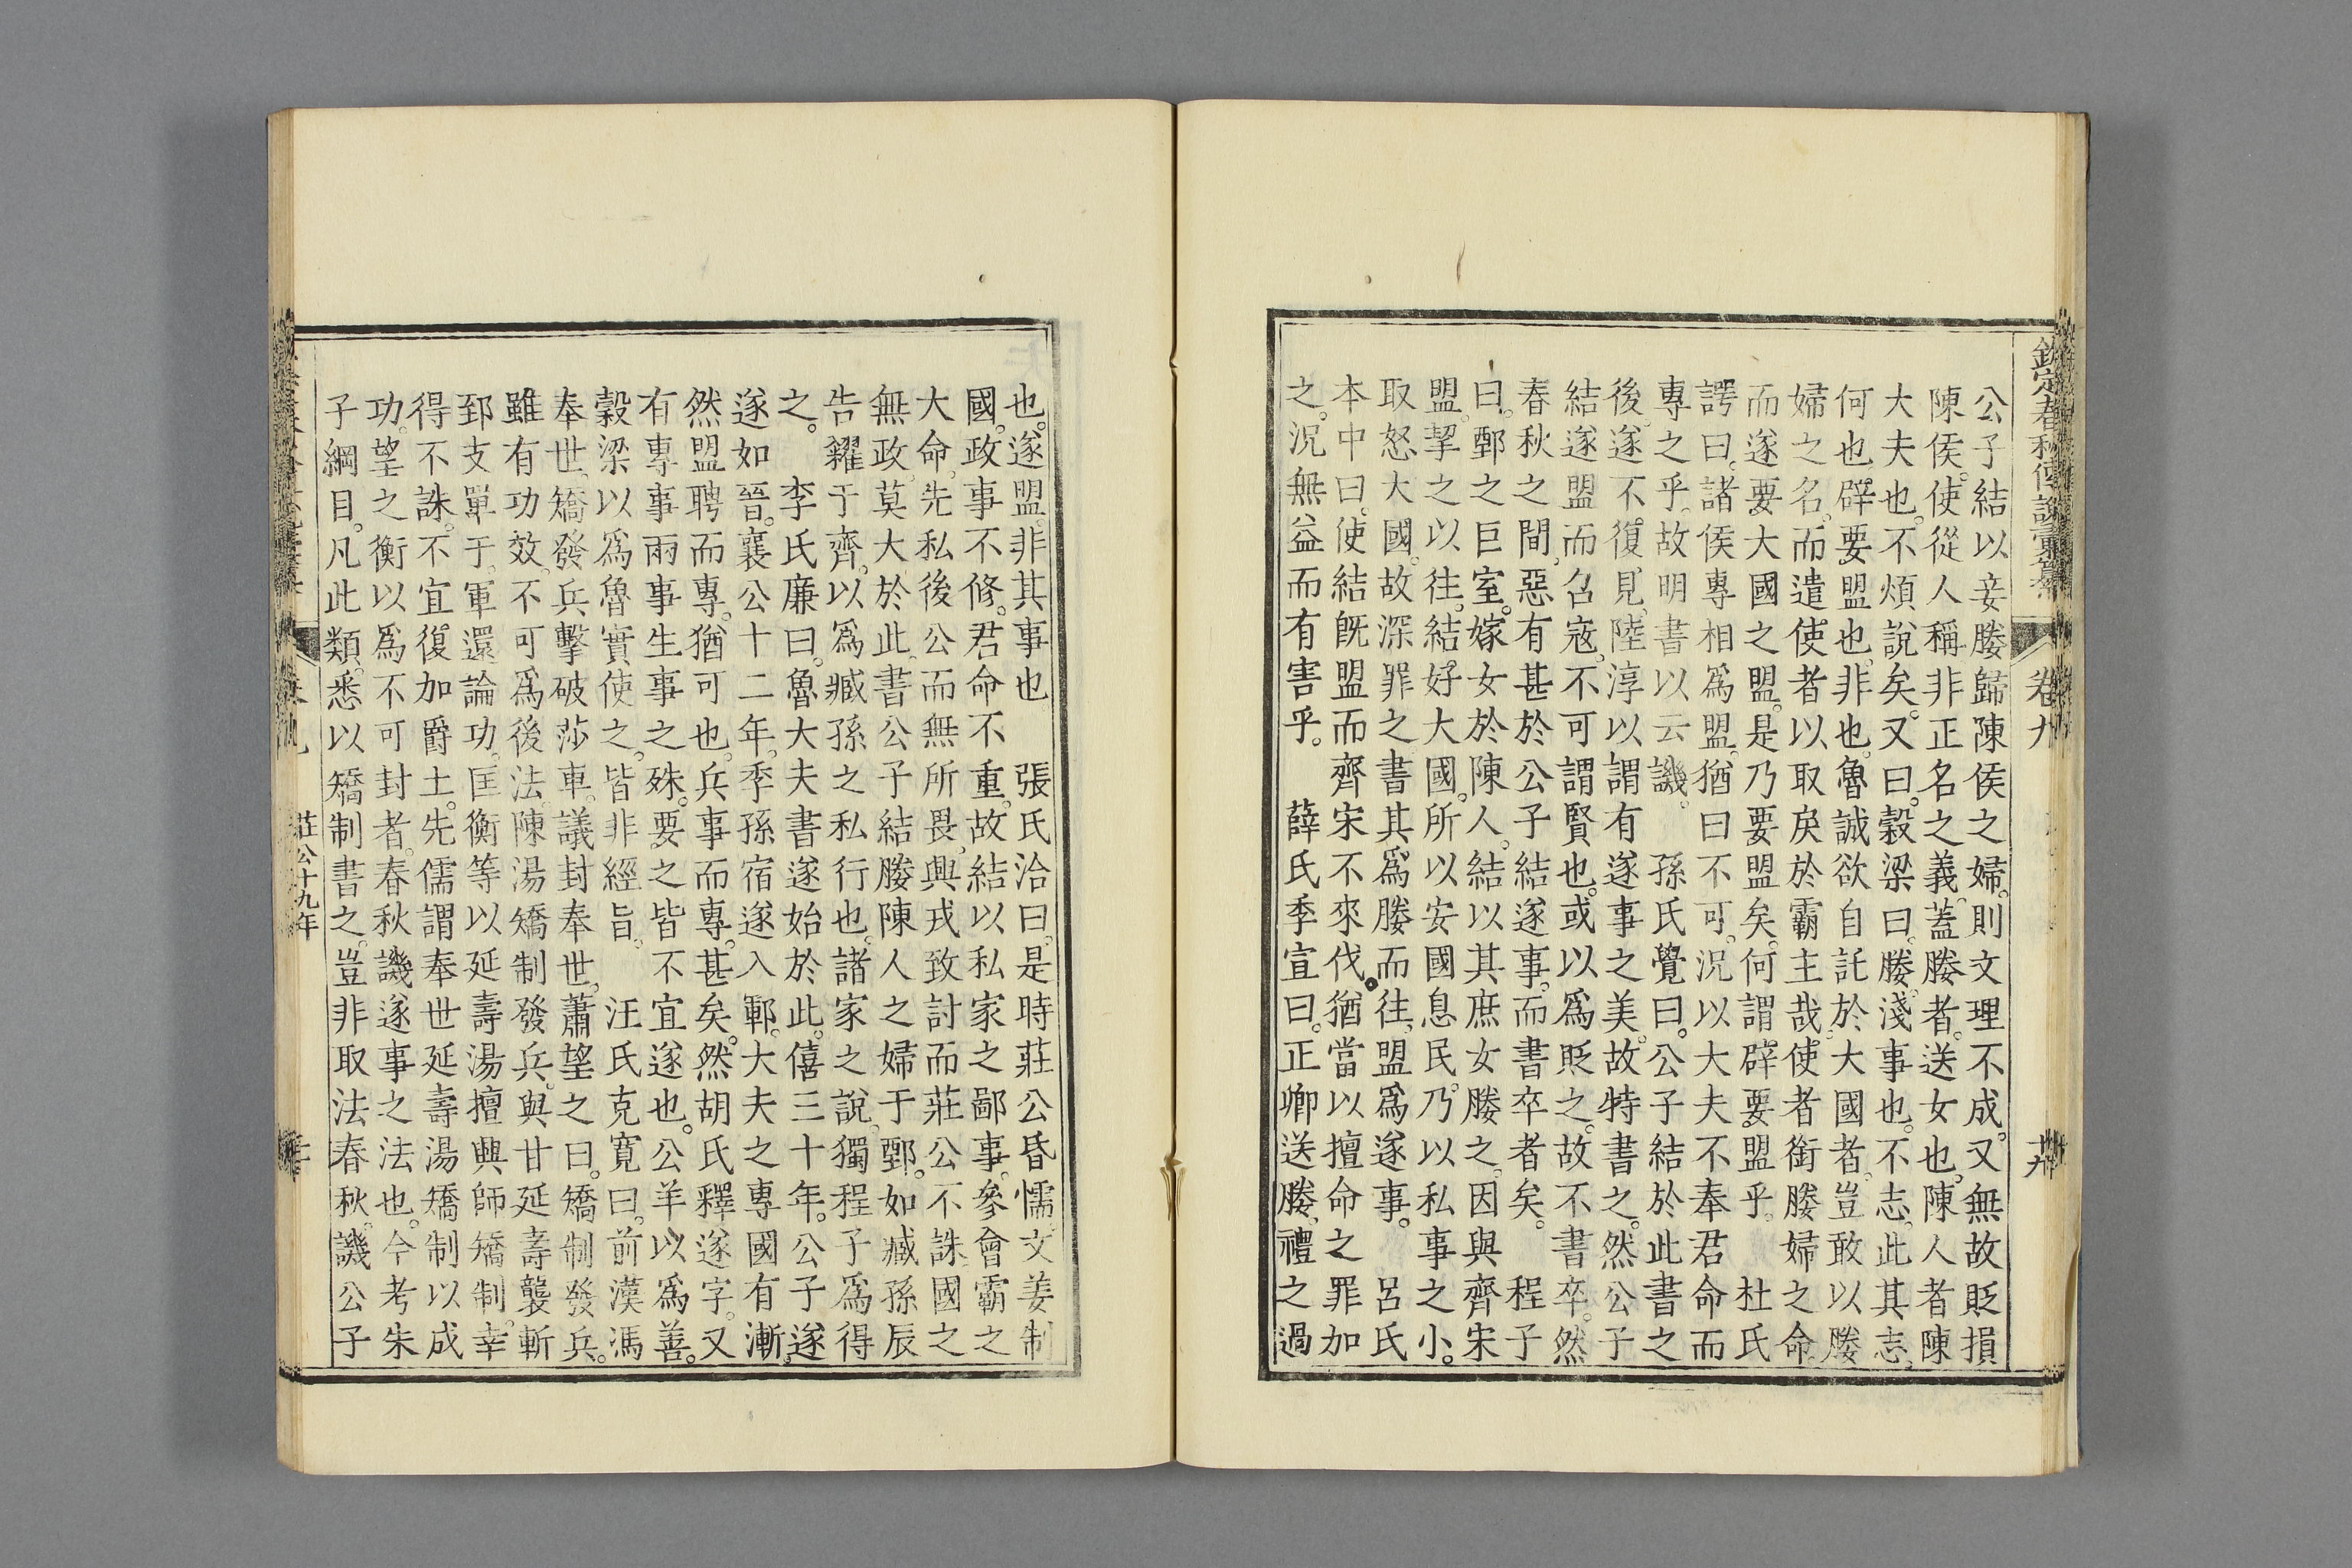 欽定春秋傳說彙纂
卷九
十九
公子結以妾媵歸陳侯之婦。則文理不成。又無故貶損
陳侯。使從人稱非正名之義。蓋媵者。送女也。陳人者陳
大夫也。不煩說矣。又曰。穀梁曰。媵。淺事也。不志。此其志。
何也。辟要盟也。非也。魯誠欲自託於大國者。豈敢以媵
婦之名。而遣使者以取戾於霸主哉。使者銜媵婦之命。
而遂要大國之盟。是乃要盟矣。何謂辟要盟乎。　杜氏
諤曰。諸侯專相爲盟。猶曰不可。況以大夫不奉君命而
專之乎。故明書以云譏。　孫氏覺曰。公子結於此書之
後。遂不復見。陸淳以謂有遂事之美。故特書之。然公子
結遂盟而召寇。不可謂賢也。或以爲貶之。故不書卒。然
春秋之間。惡有甚於公子結遂事。而書卒者矣。　程子
曰。鄄之巨室。嫁女於陳人。結以其庶女媵之。因與齊宋
盟。挈之以往。結好大國。所以安國息民。乃以私事之小。
取怒大國。故深罪之。書其爲媵而往。盟爲遂事。　呂氏
本中曰。使結旣盟而齊宋不來伐。猶當以擅命之罪加
之。況無益而有害乎。　薛氏季宣曰。正卿送媵。禮之過
也。遂盟。非其事也　張氏洽曰。是時莊公昏懦。文姜制
國。政事不修。君命不重。故結以私家之鄙事。參會霸之
大命。先私後公而無所畏。興戎致討而莊公不誅。國之
無政。莫大於此。書公子結媵陳人之婦于鄄。如臧孫辰
告糴于齊。以爲臧孫之私行也。諸家之說。獨程子爲得
之。　李氏廉曰。魯大夫書遂始於此。僖三十年。公子遂
遂如晉。襄公十二年。季孫宿遂入鄆。大夫之專國有漸。
然盟聘而專。猶可也。兵事而專。甚矣。然胡氏釋遂字。又
有專事兩事生事之殊。要之皆不宜遂也。公羊以爲善。
穀梁以爲魯實使之。皆非經旨。　汪氏克寬曰。前漢馮
奉世矯發兵擊破莎車。議封奉世。蕭望之曰。矯制發兵。
雖有功效。不可爲後法。陳湯矯制發兵。與甘延壽襲斬
郅支單于。軍還論功。匡衡等以延壽湯擅興師矯制。幸
得不誅。不宜復加爵土。先儒謂奉世延壽湯矯制以成
功。望之衡以爲不可封者。春秋譏遂事之法也。今考朱
子綱目。凡此類。悉以矯制書之。豈非取法春秋。譏公子
莊公十九年